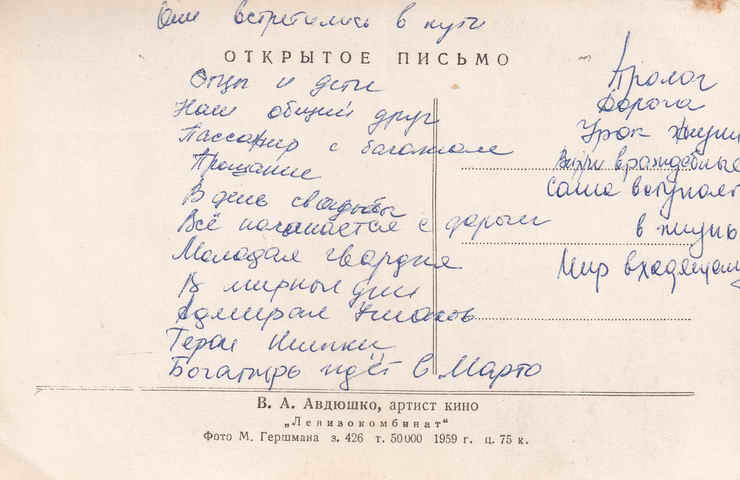 Они встретились в пути
ОТКРЫТОЕ ПИСЬМО
Отцы и дети
Наш общий друг
Пассажир с багажом
Прощание
В день свадьбы
Всё начинается с дороги
Молодая гвардия
В мирные дни
Адмирал Ушаков
Герои Шипки
Богатырь идёт в Марто
Пролог
Дорога
Урок жизни
Вихри враждебные
Саша вступает
в жизнь
Мир входящему
В. А. Авдюшко, артист кино
„Ленивокомбинат“
Фото М. Гершмана з. 426 т. 50000 1959 г. ц. 75 к.